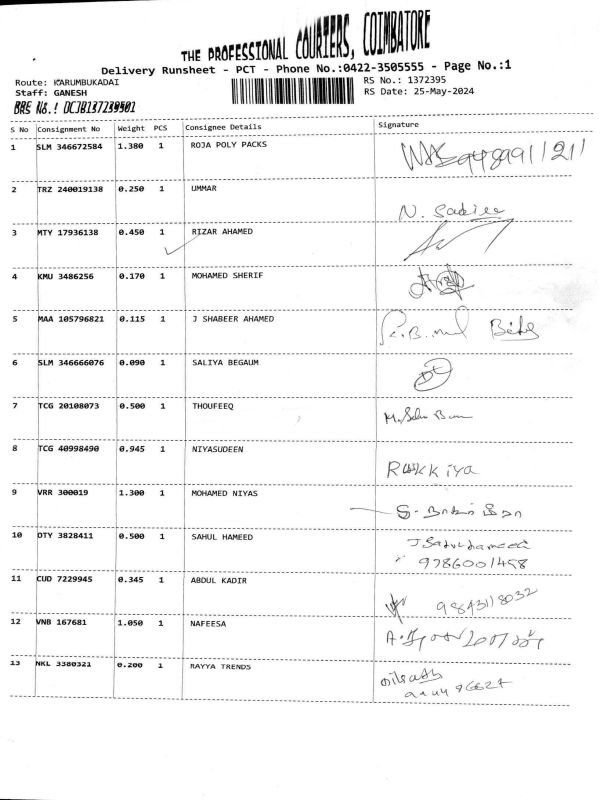 THE PROFESSIONAL COURIERS, COIMBATORE
Delivery Runsheet - PCT - Phone No.:0422-3505555 - Page No.:1
Route: KARUMBUKADAI RS No.: 1372395
Staff: GANESH RS Date: 25-May-2024
S No Consignment No Weight PCS Consignee Details Signature
1 SLM 346672584 1.380 1 ROJA POLY PACKS
2 TRZ 240019138 0.250 1 UMMAR
3 MTY 17936138 0.450 1 RIZAR AHAMED
4 KMU 3486256 0.170 1 MOHAMED SHERIF
5 MAA 105796821 0.115 1 J SHABEER AHAMED
6 SLM 346666076 0.090 1 SALIYA BEGAUM
7 TCG 20108073 0.500 1 THOUFEEQ
8 TCG 40998490 0.945 1 NIYASUDEEN
9 VRR 300019 1.300 1 MOHAMED NIYAS
10 OTY 3828411 0.500 1 SAHUL HAMEED
9786001458
11 CUD 7229945 0.345 1 ABDUL KADIR 9843118032
12 VNB 167681 1.050 1 NAFEESA
13 NKL 3380321 0.200 1 RAYYA TRENDS